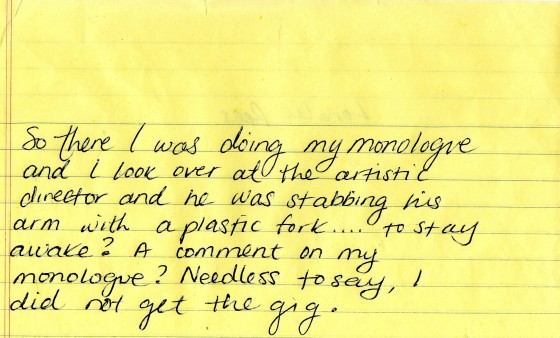 So there I was doing my monologue
and i look over at the artistic
director and he was stabbing his
arm with a plastic fork.... to stay
awake? A comment on my
monologue? Needless to say, I
did not get the gig.